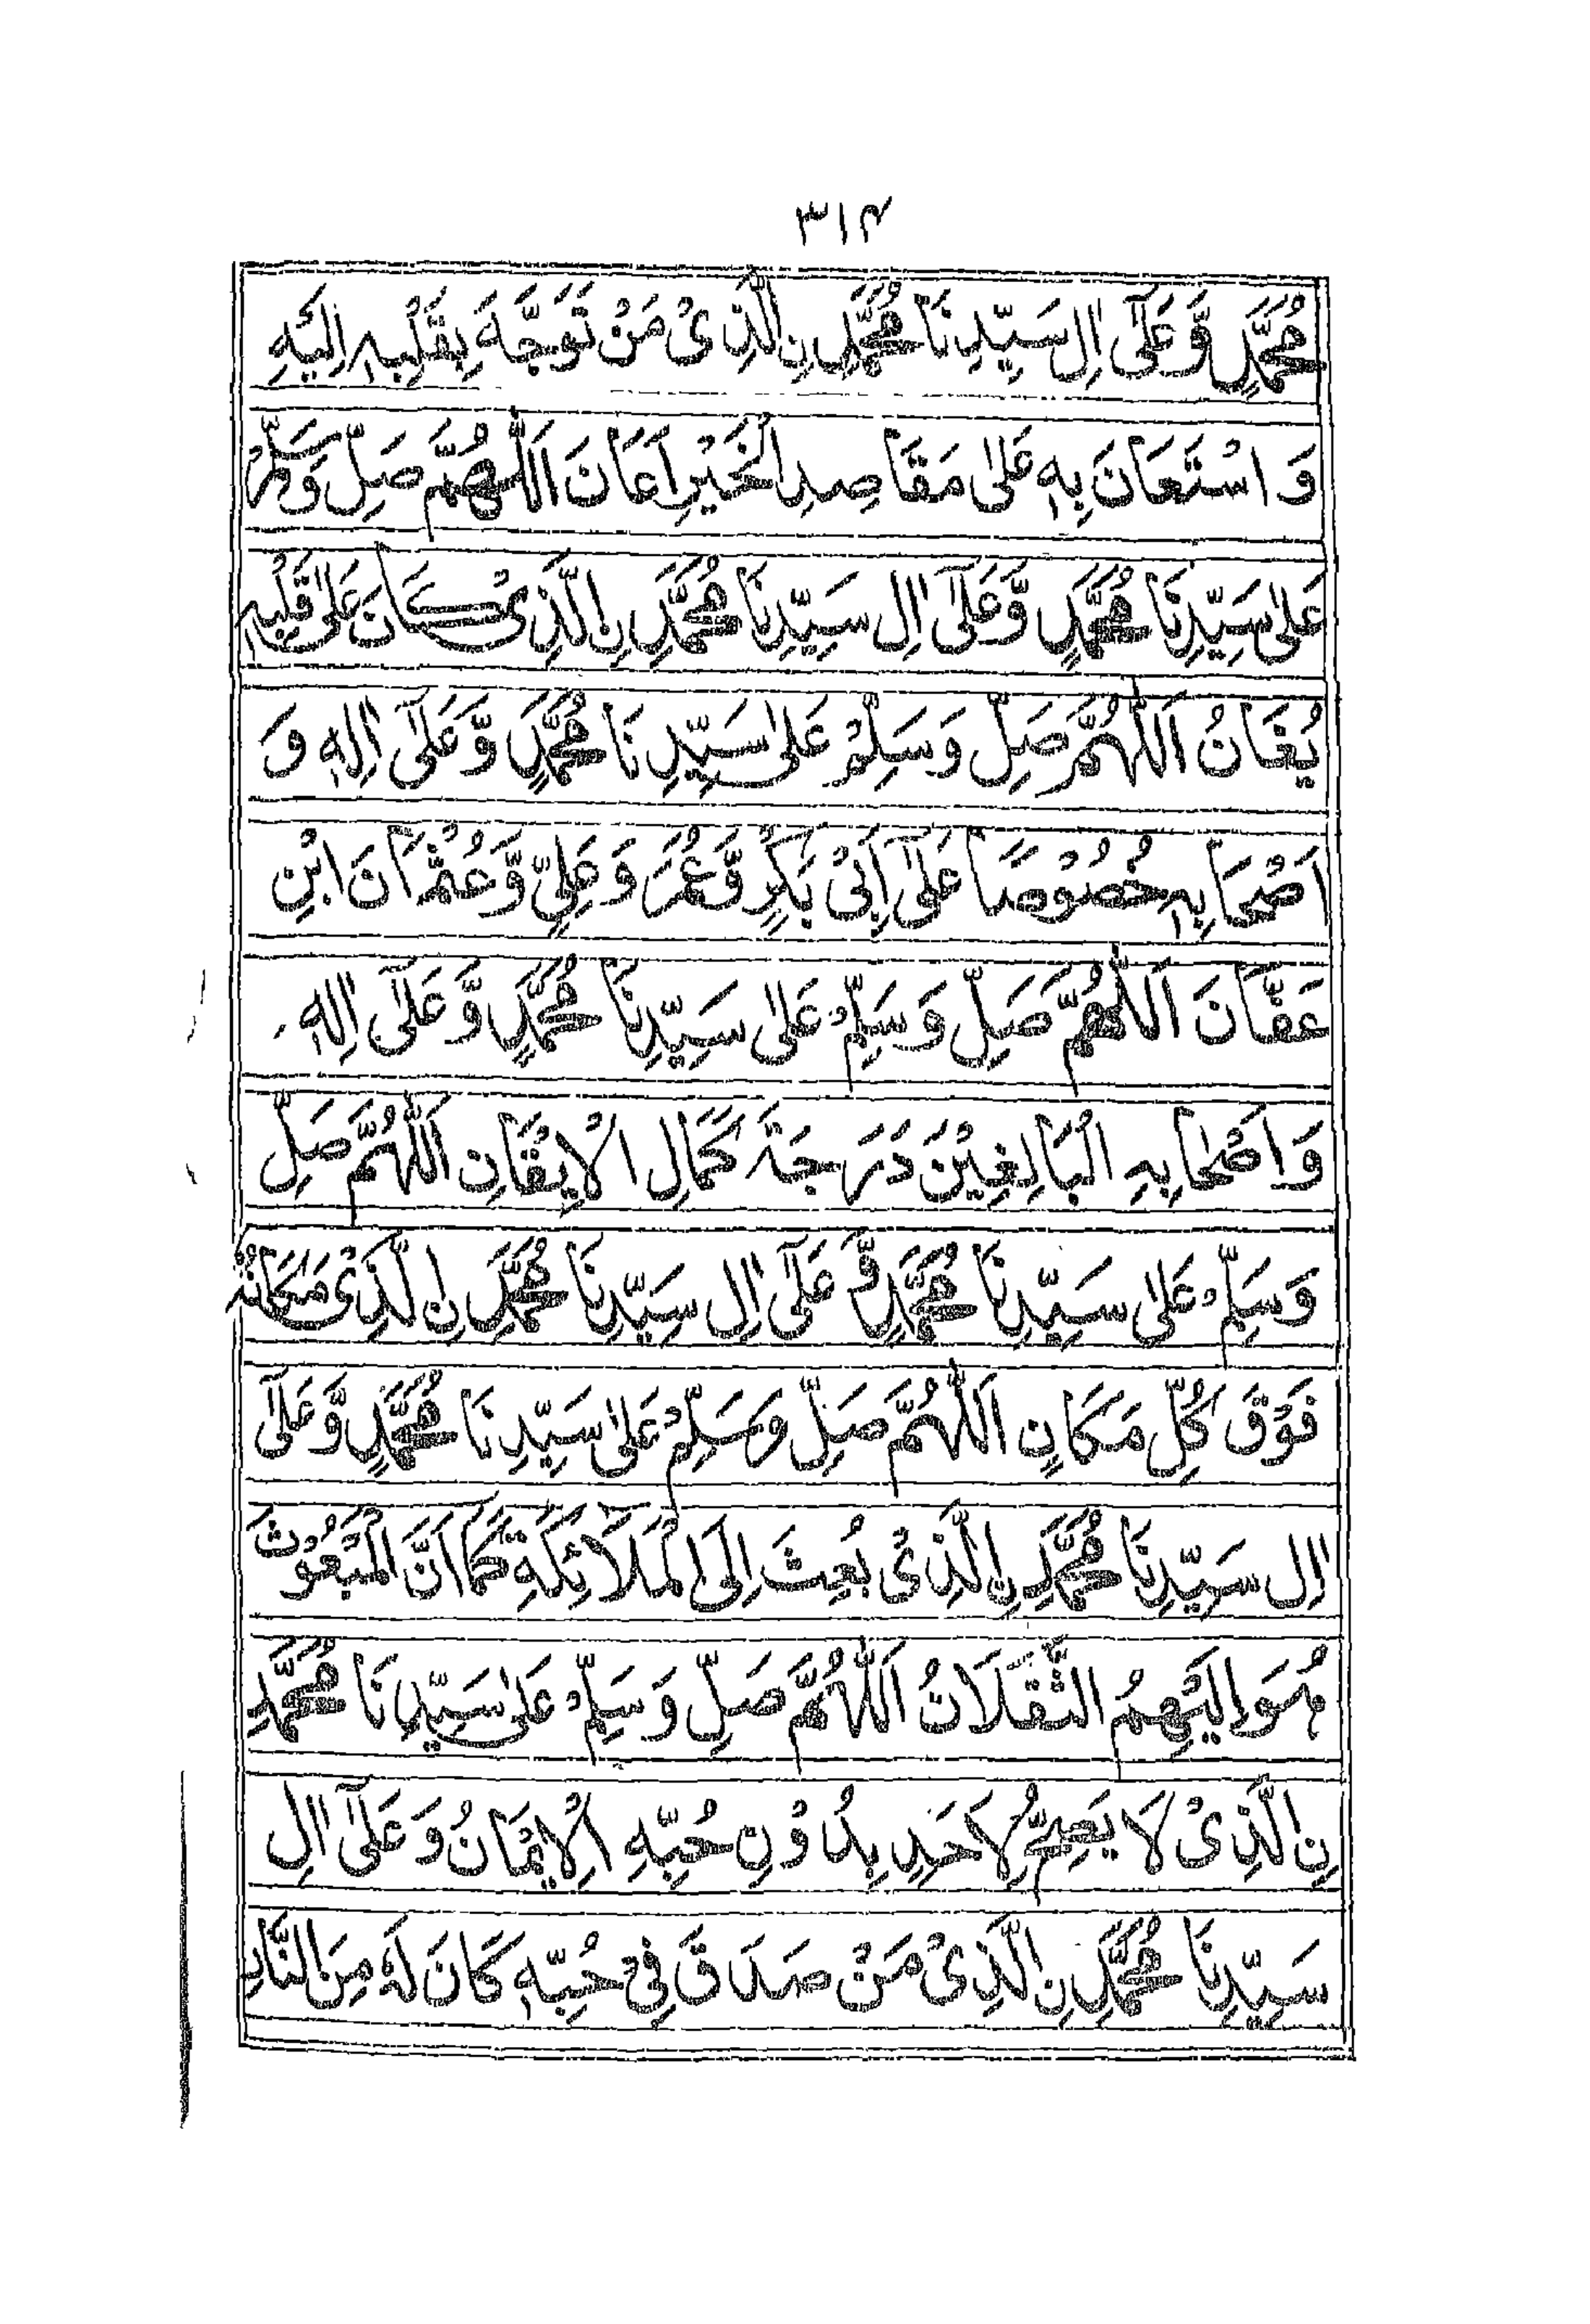 ٣١٤
مُحَمَّدٍ وَّعَلٰٓى اٰلِ سَيِّدِنَا مُحَمَّدِنِ الَّذِىْ مَنْ تَوَجَّهَ بِقَلْبِهٖ اِلَيْهِ
وَاسْتَعَانَ بِهٖ عَلٰى مَقَاصِدِ الْخَيْرِ اَعَانَ اَللّٰهُمَّ صَلِّ وَسَلِّمْ
عَلٰى سَيِّدِنَا مُحَمَّدٍ وَّعَلٰٓى اٰلِ سَيِّدِنَا مُحَمَّدِنِ الَّذِىْ كَانَ عَلٰى قَلْبِهٖ
يُغَانُ اَللّٰهُمَّ صَلِّ وَسَلِّمْ عَلٰى سَيِّدِنَا مُحَمَّدٍ وَّعَلٰٓى اٰلِهٖ وَ
اَصْحَابِهٖ خُصُوْصًا عَلٰٓى اَبِىْ بَكْرٍ وَّعُمَرَ وَعَلِيٍّ وَّعُثْمَانَ ابْنِ
عَفَّانَ اَللّٰهُمَّ صَلِّ وَسَلِّمْ عَلٰى سَيِّدِنَا مُحَمَّدٍ وَّعَلٰٓى اٰلِهٖ
وَاَصْحَابِهِ الْبَالِغِيْنَ دَرَجَةَ كَمَالِ الْاِيْقَانِ اَللّٰهُمَّ صَلِّ
وَسَلِّمْ عَلٰى سَيِّدِنَا مُحَمَّدٍ وَّعَلٰٓى اٰلِ سَيِّدِنَا مُحَمَّدِنِ الَّذِىْ مَكَانُهٗ
فَوْقَ كُلِّ مَكَانٍ اَللّٰهُمَّ صَلِّ وَسَلِّمْ عَلٰى سَيِّدِنَا مُحَمَّدٍ وَّعَلٰٓى
اٰلِ سَيِّدِنَا مُحَمَّدِنِ الَّذِىْ بُعِثَ اِلَى الْمَلَائِكَةِ كَمَا اَنَّ الْمَبْعُوْثَ
هُوَ اِلَيْهِمُ الثَّقَلَانُ اَللّٰهُمَّ صَلِّ وَسَلِّمْ عَلٰى سَيِّدِنَا مُحَمَّدِ
نِ الَّذِىْ لَا يَصِحُّ لِاَحَدٍ بِدُوْنِ حُبِّهِ الْاِيْمَانُ وَعَلٰٓى اٰلِ
سَيِّدِنَا مُحَمَّدِنِ الَّذِىْ مَنْ صَدَقَ فِىْ حُبِّهٖ كَانَ لَهٗ مِنَ النَّارِ